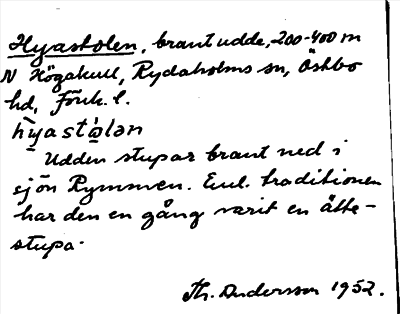 Hyastolen, brant udde, 200-400 m
N Högakull, Rydaholms sn, Östbo
hd, Jönk. l.
hyastòlən
Udden stupar brant ned i
sjön Rymmen. Enl. traditionen
har den en gång varit en ätte-
stupa.
Th. Andersson 1952.